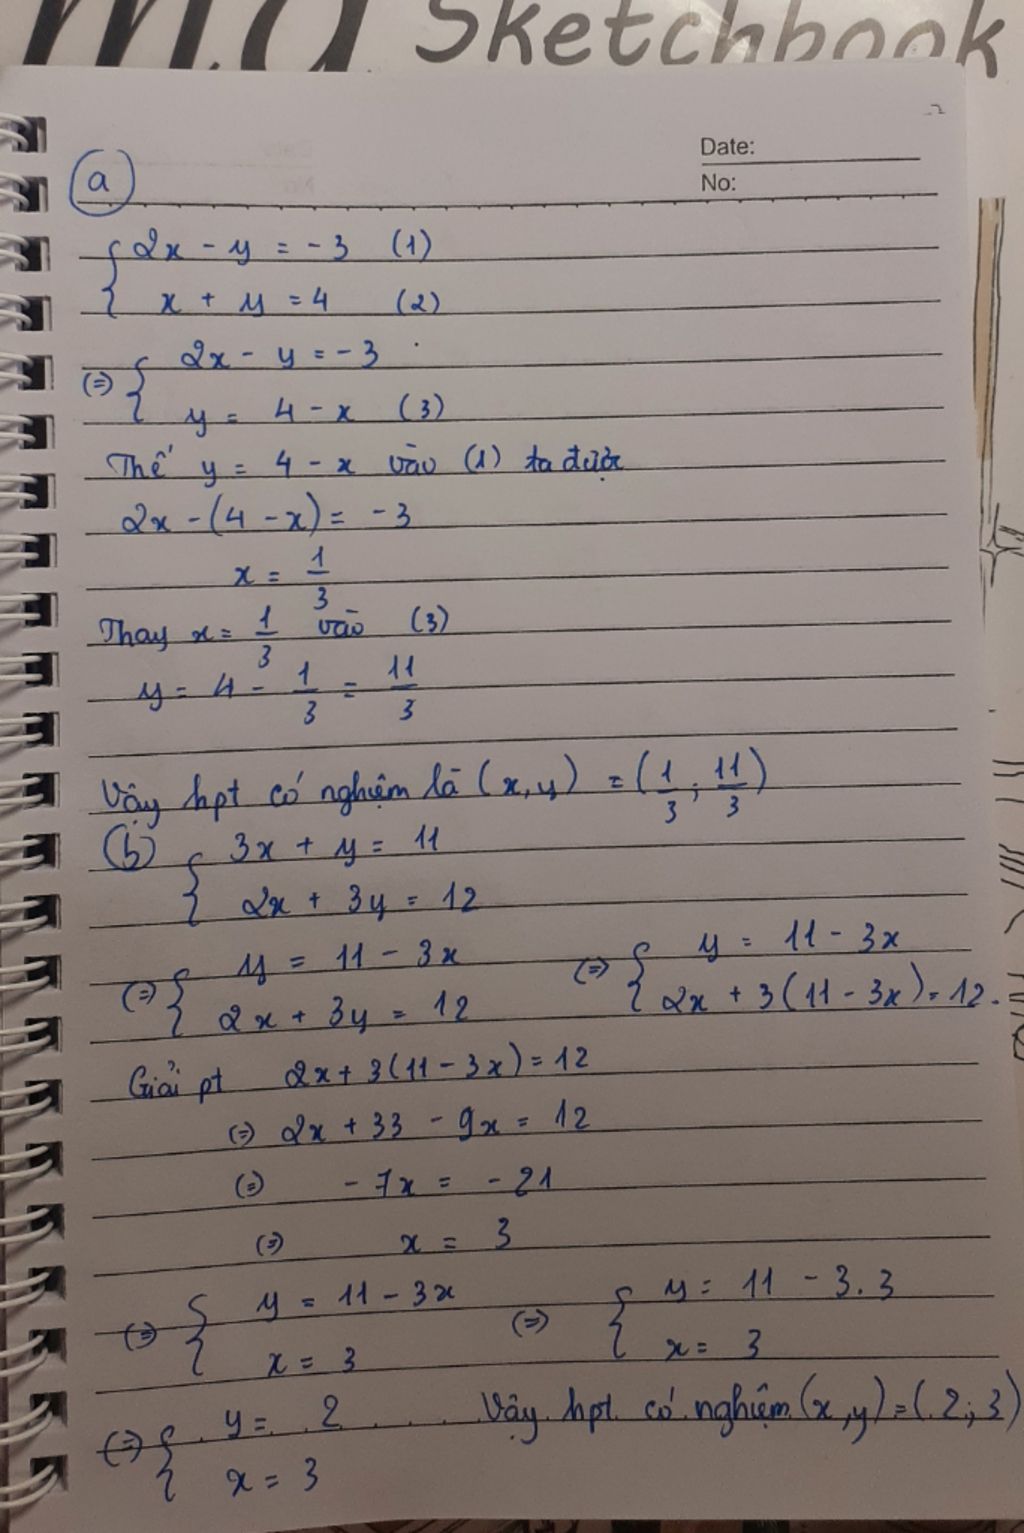 Sketchbook
Date:
No:
a
2x - y = -3 (1)
x + y = 4 (2)
(=) 2x - y = -3
y = 4 - x (3)
Thế y = 4 - x vào (1) ta được
2x - (4 - x) = -3
x = 1/3
Thay x = 1/3 vào (3)
y = 4 - 1/3 = 11/3
Vậy hpt có nghiệm là (x, y) = (1/3; 11/3)
(b) 3x + y = 11
2x + 3y = 12
(=) y = 11 - 3x (=) y = 11 - 3x
2x + 3y = 12 2x + 3(11 - 3x) = 12.
Giải pt 2x + 3(11 - 3x) = 12
(=) 2x + 33 - 9x = 12
(=) - 7x = - 21
(=) x = 3
(=) y = 11 - 3x (=) y = 11 - 3.3
x = 3 x = 3
(=) y = 2 Vậy hpt có nghiệm (x, y) = (2; 3)
x = 3